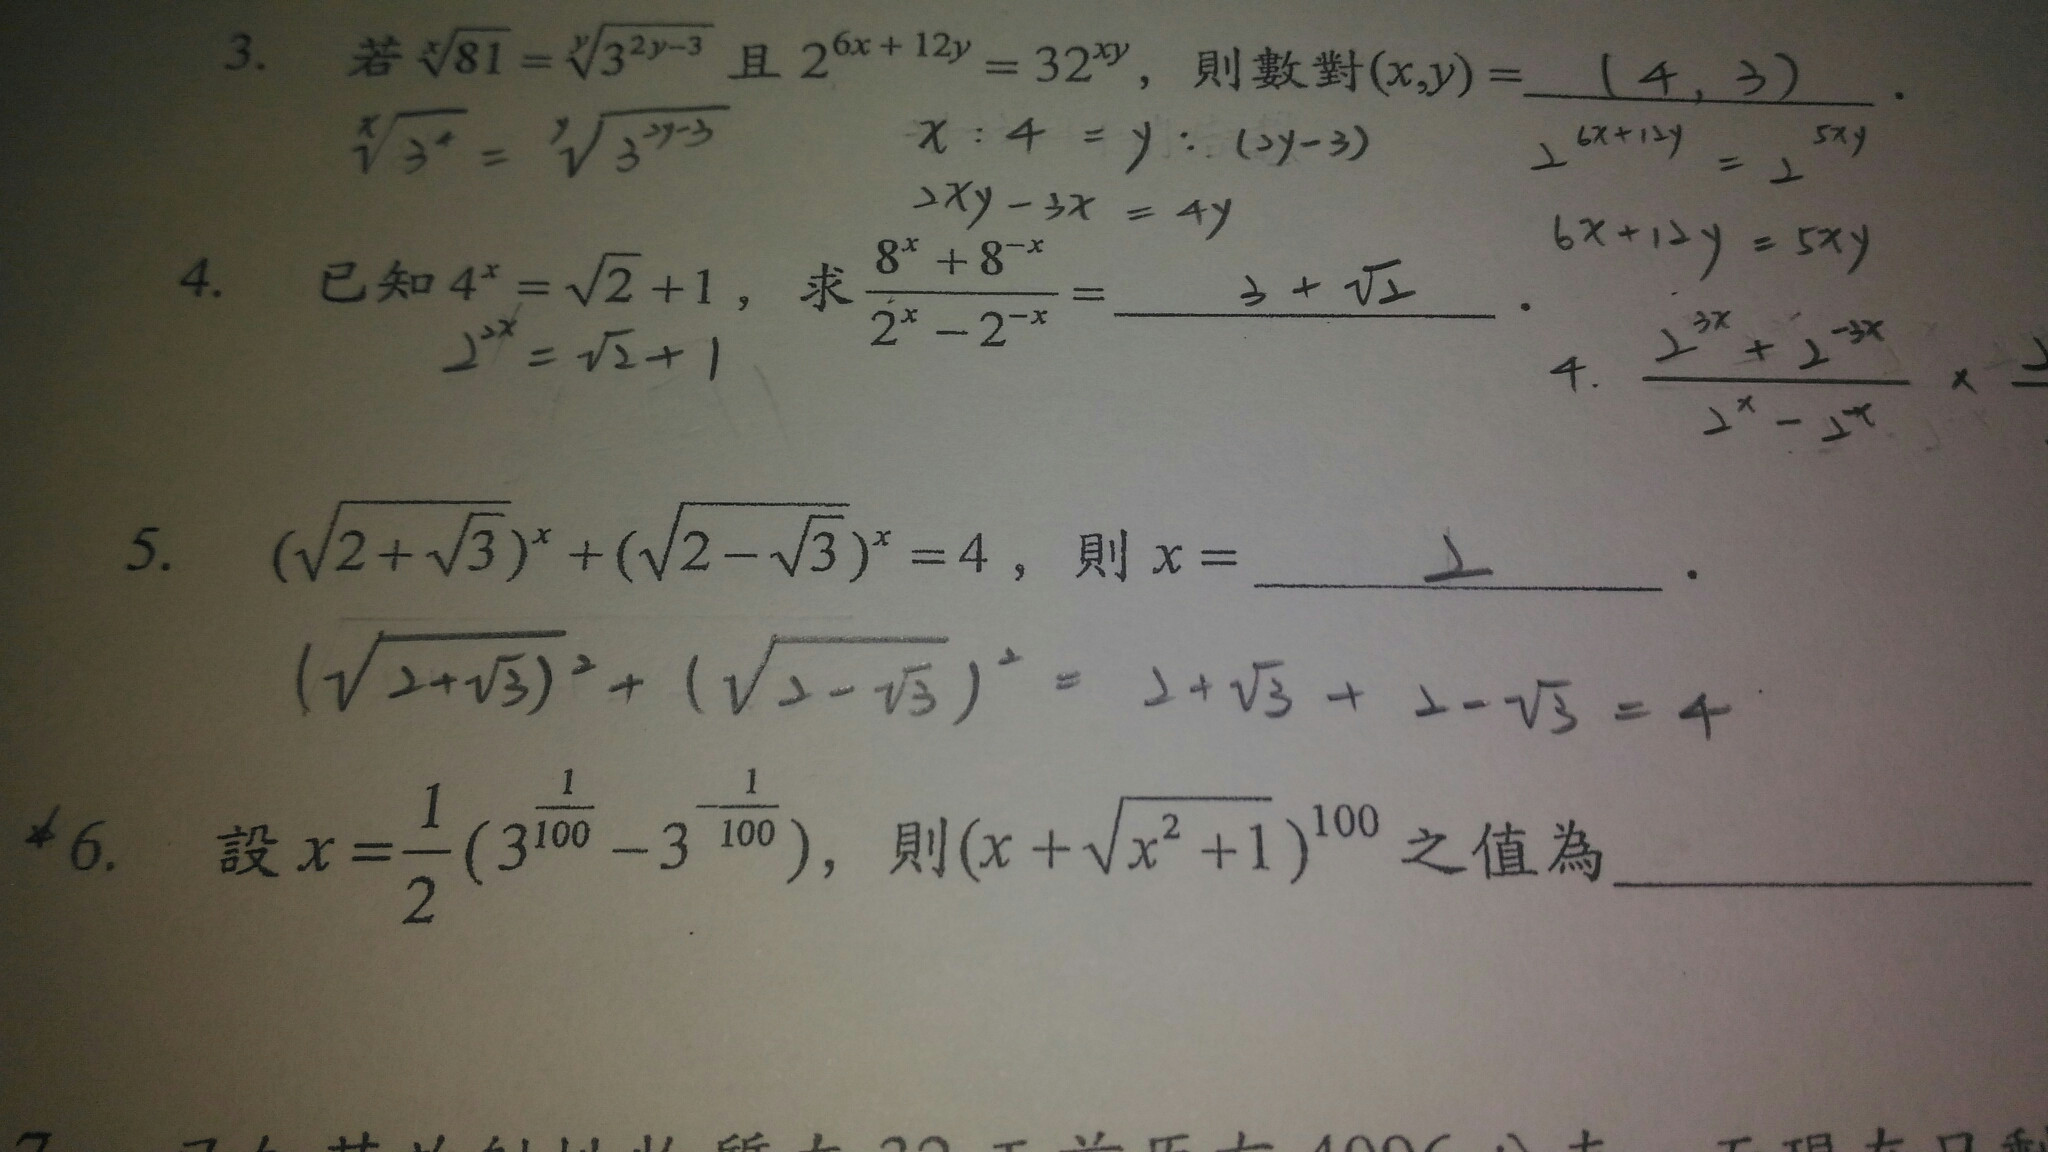 3. 若 ˣ√81 = ʸ√(3^(2y−3)) 且 2^(6x+12y) = 32^(xy)，則數對(x,y) = (4, 3) .
ˣ√(3^4) = ʸ√(3^(2y−3)) x : 4 = y : (2y−3) 2^(6x+12y) = 2^(5xy)
2xy − 3x = 4y 6x + 12y = 5xy
4. 已知 4^x = √2 + 1，求 (8^x + 8^(−x))/(2^x − 2^(−x)) = 3 + √2 .
2^(2x) = √2 + 1 4. (2^(3x) + 2^(−3x))/(2^x − 2^(−x)) ×
5. (√(2+√3))^x + (√(2−√3))^x = 4，則 x = 2 .
(√(2+√3))^2 + (√(2−√3))^2 = 2+√3 + 2−√3 = 4
*6. 設 x = 1/2 (3^(1/100) − 3^(−1/100))，則(x + √(x^2 + 1))^100 之值為